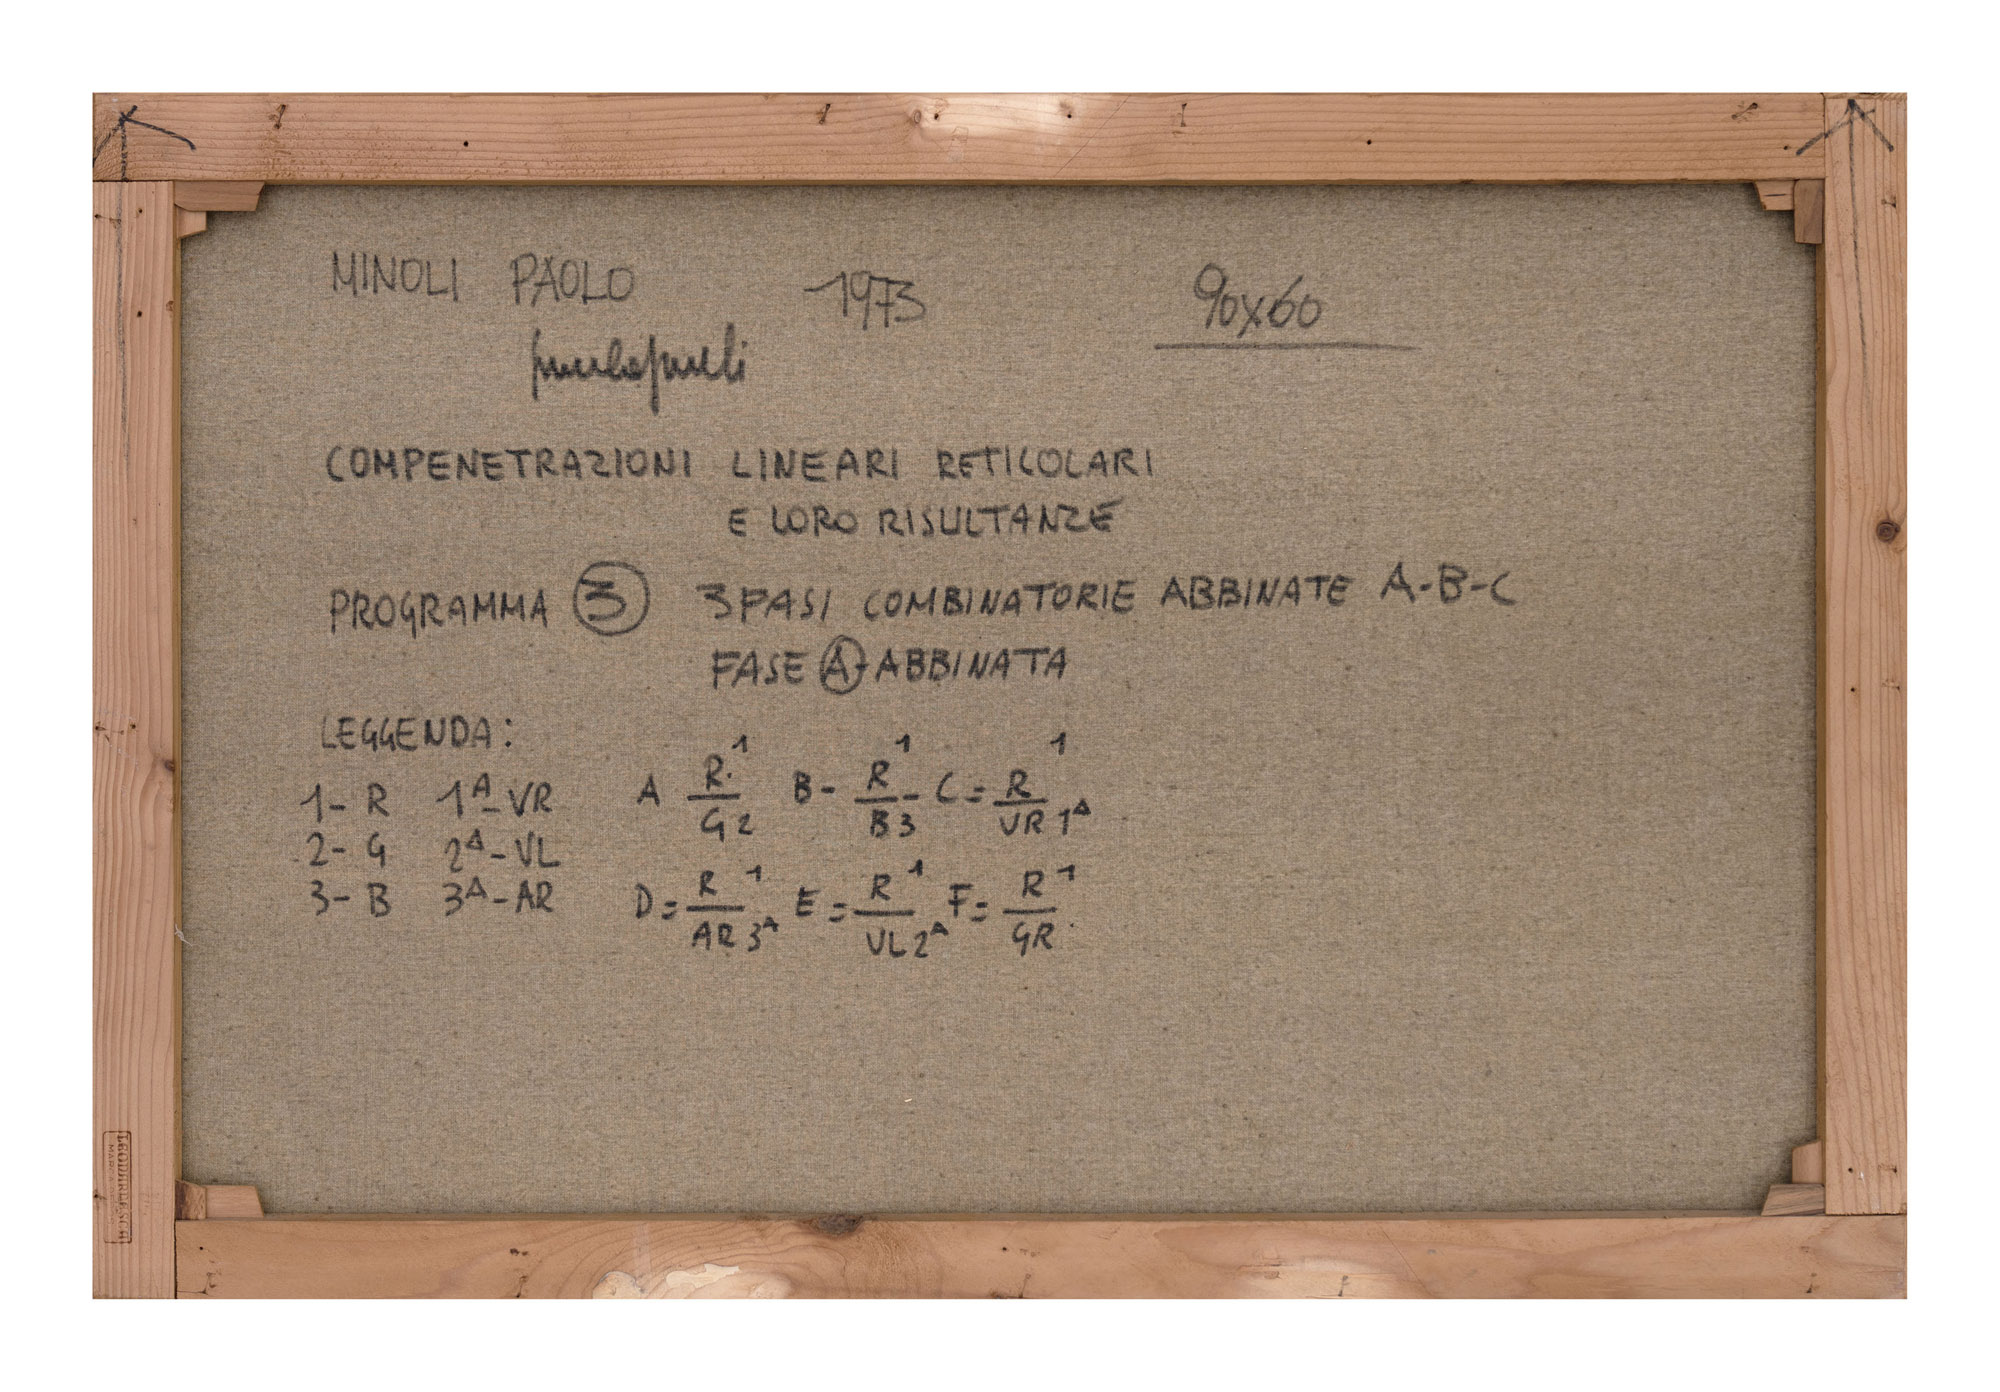 MINOLI PAOLO 1973 90x60
COMPENETRAZIONI LINEARI RETICOLARI
E LORO RISULTANZE
PROGRAMMA 3 3 FASI COMBINATORIE ABBINATE A-B-C
FASE A-ABBINATA
LEGGENDA:
1- R 1A-VR
2- G 2A-VL
3- B 3A-AR
A R1/G2 B- R1/B3 - C= R1/VR1A
D= R1/AR3A E= R1/VL2A F= R1/GR.